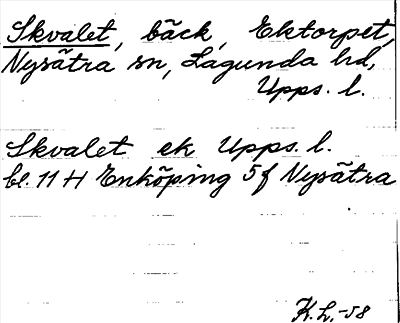 Skvalet, bäck, Ektorpet,
Nysätra sn, Lagunda hd,
Upps. l.
Skvalet ek Upps. l.
bl. 11 H Enköping 5f Nysätra
K.L.-58